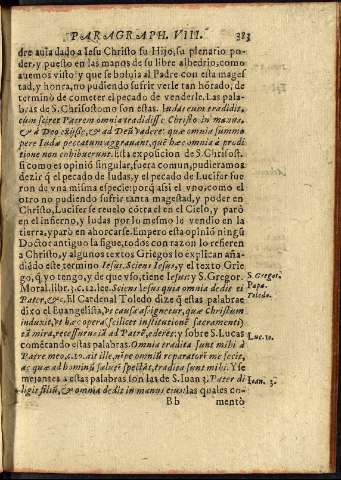 PARAGRAPH. VIII. 383
dre auia dado a Iesu Christo su Hijo, su plenario po-
der, y puesto en las manos de su libre albedrio; como
auemos visto: y que se boluia al Padre con esta mages
tad, y honra, no pudiendo sufrir verle tan hõrado, de
terminò de cometer el pecado de venderle. Las pala-
bras de S. Chrisostomo son estas. Iudas eum tradidit,
cum sciret Patrem omnia tradidisse Christo in manus,
& à Deo exijsse, & ad Deũ vadere: quæ omnia summo
pere Iudæ peccatum aggrauant, quẽ hæc omnia à prodi
tione non cohibuerunt. Esta exposicion de S. Chrisost.
si como es opinió singular, fuera comun, pudieramos
dezir q̃ el pecado de Iudas, y el pecado de Lucifer fue
ron de vna misma especie: porq̃ assi el vno, como el
otro no pudiendo sufrir tanta magestad, y poder en
Christo, Lucifer se reuelo cõtra el en el Cielo, y parò
en el infierno, y Iudas por lo mesmo lo vendio en la
tierra, y parò en ahorcarse. Empero esta opinió ningũ
Doctor antiguo la sigue, todos con razon lo refieren
a Christo, y algunos textos Griegos lo explican aña-
diédo este termino Iesus. Sciens Iesus, y el texto Grie
go, q̃ yo tengo, y de que vso, tiene Iesus: y S. Gregor.
Moral. libr. 6. c. 12. lee. Sciens Iesus quia omnia dedit ei
Pater, &c. El Cardenal Toledo dize q̃ estas palabras
dixo el Euangelista, Vt causa assignetur, quæ Christum
induxit, vt hæc opera (scilicet institutionẽ sacramenti)
tã mira, recessurus iã ad Patrẽ, ederet: y sobre S. Lucas
comẽtando estas palabras. Omnia tradita sunt mihi à
Patre meo, c. 10. ait ille, nẽpe omniũ reparatorẽ me fecit,
ac quæ ad hominũ salutẽ spectãt, tradita sunt mihi. Y se
mejantes a estas palabras son las de S. Iuan 3. Pater di
ligit filiũ, & omnia dedit in manus eius: las quales co-
Bb mentò
S. Gregor.
Papa.
Toledo.
Luc. 10.
Ioan. 3.